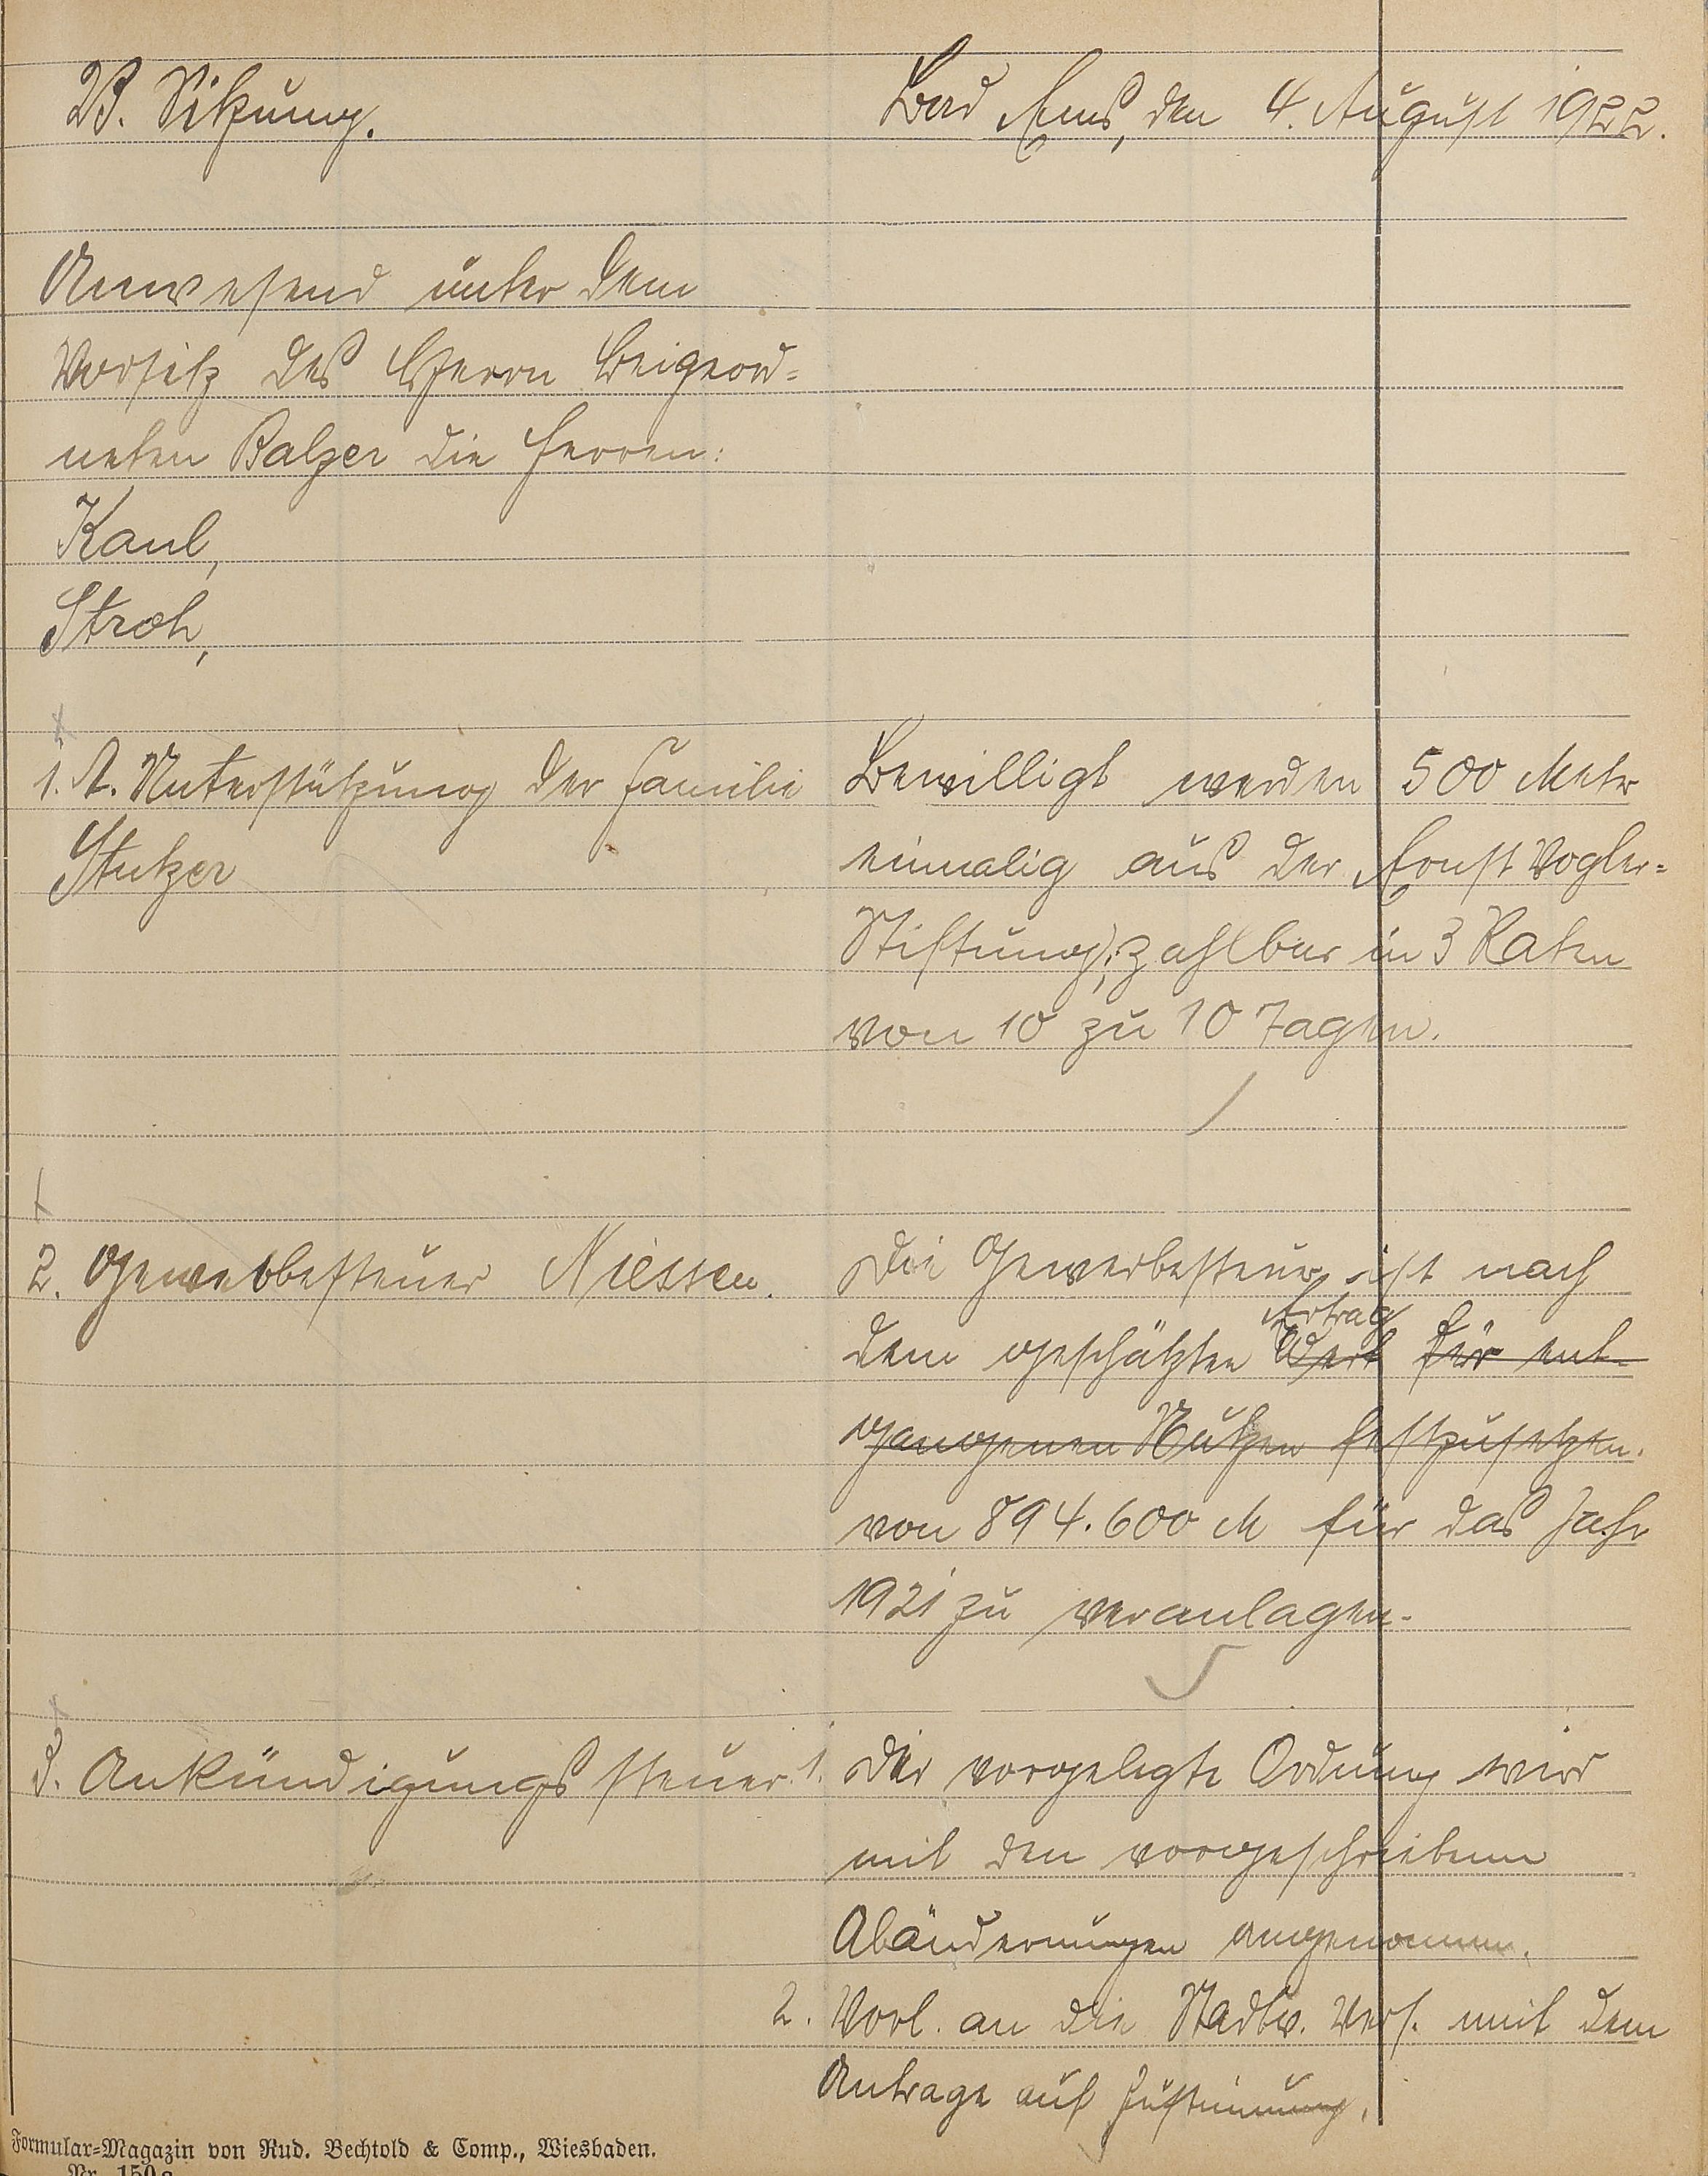 23. Sitzung.
Bad Ems, den 4. August 1922.
Anwesend unter dem
Vorsitz des Herrn Beigeord=
neten Balzer die Herren:
Kaul,
Stroh,
1. A. Unterstützung der Familie
Stutzer
Bewilligt werden 500 Mark
einmalig aus der Ernst Vogler=
Stiftung, zahlbar in 3 Raten
von 10 zu 10 Tagen.
2. Gewerbesteuer Niessen.
Die Gewerbesteuer ist nach
Ertrag
dem geschätzten Wert für ent-
gangenen Nutzen festzusetzen.
von 894.600 M für das Jahr
1921 zu veranlagen.
3. Ankündigungssteuer.
1. Die vorgelegte Ordnung wird
mit den vorgeschriebenen
Abänderungen angenommen.
2. Vorl. an die Stadtv. Vers. mit dem
Antrage auf Zustimmung.
Formular=Magazin von Rud. Bechtold & Comp., Wiesbaden.
Nr. 150